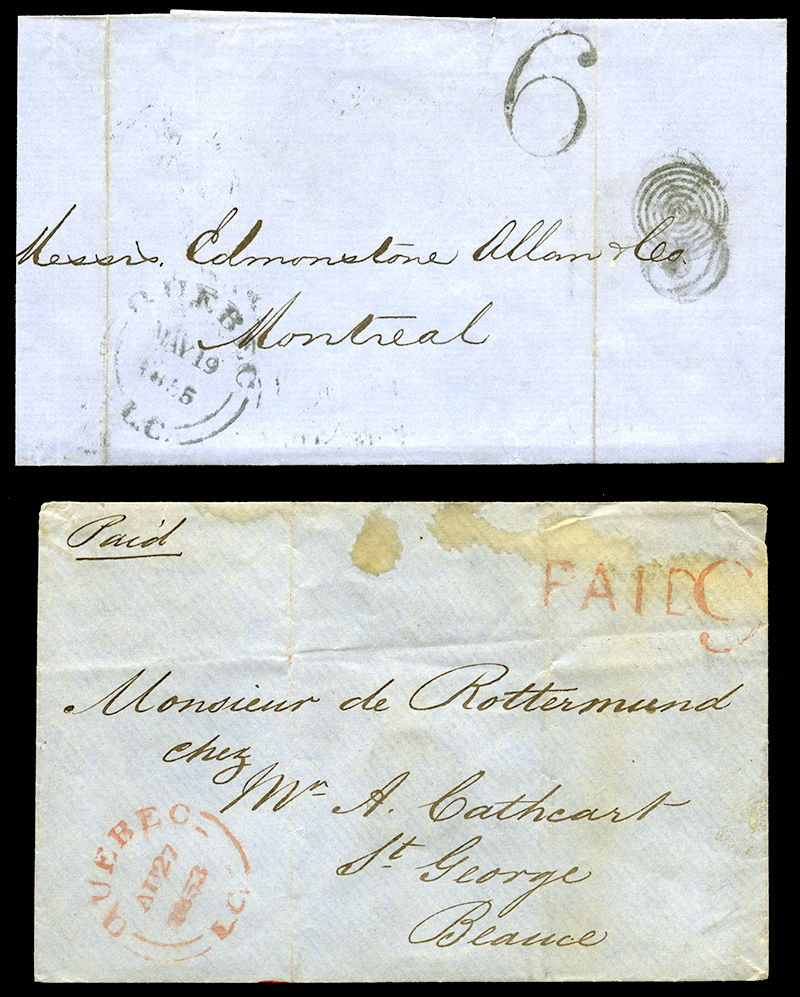 6
Messrs. Edmonstone Allan & Co.
Montreal
QUEBEC
MAY 19
L.C.
Paid
PAID
Monsieur de Rottermund
chez
Mr A. Cathcart
St George
Beauce
QUEBEC
27
1853
L.C.